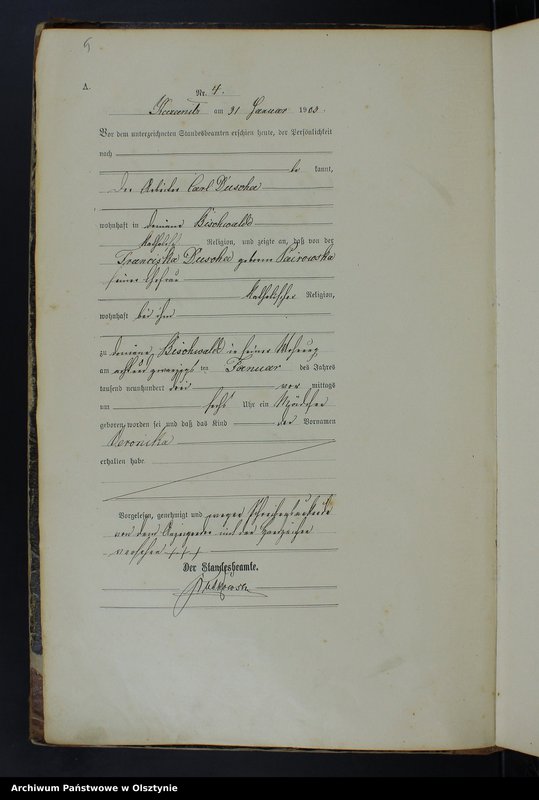 5
A.
Nr. 4.
am 31 Januar 1903.
Vor dem unterzeichneten Standesbeamten erschien heute, der Persönlichkeit
nach
be kannt,
Der Arbeiter Carl Duscha
wohnhaft in Domäne Bischwalde
katholischer Religion, und zeigte an, daß von der
Franciska Duscha geborene
seiner Ehefrau
katholischer Religion,
wohnhaft bei ihm
zu Domäne Bischwalde in seiner Wohnung
am acht und zwanzigsten Januar des Jahres
tausend neunhundert drei vor mittags
um sechs Uhr ein Mädchen
geboren worden sei und daß das Kind den Vornamen
Veronika
erhalten habe.
Vorgelesen, genehmigt und wegen Schreibensunkunde
von dem Anzeigenden mit drei Handzeichen
versehen + + +
Der Standesbeamte.
Archiwum Państwowe w Olsztynie